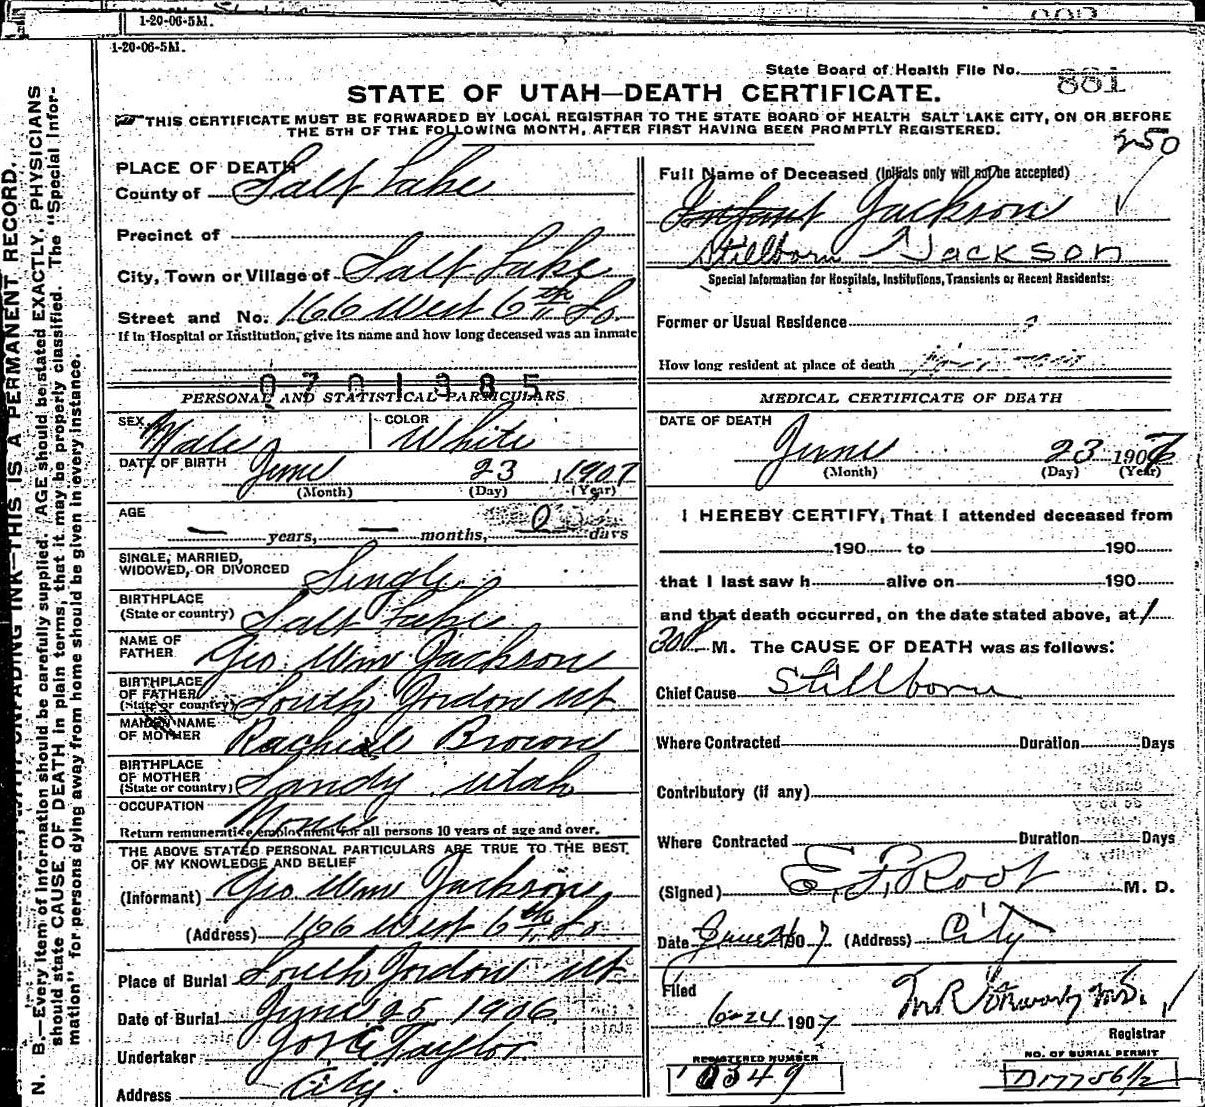 1-20-06-5M.
1-20-06-5M.
State Board of Health File No. 881
STATE OF UTAH—DEATH CERTIFICATE.
THIS CERTIFICATE MUST BE FORWARDED BY LOCAL REGISTRAR TO THE STATE BOARD OF HEALTH SALT LAKE CITY, ON OR BEFORE
THE 5TH OF THE FOLLOWING MONTH, AFTER FIRST HAVING BEEN PROMPTLY REGISTERED.
250
N. B.—Every item of information should be carefully supplied. AGE should be stated EXACTLY. PHYSICIANS
should state CAUSE OF DEATH in plain terms, that it may be properly classified. The "Special Infor-
mation" for persons dying away from home should be given in every instance.
UNFADING INK—THIS IS A PERMANENT RECORD.
PLACE OF DEATH
County of Salt Lake
Precinct of
City, Town or Village of Salt Lake
Street and No. 166 West 6th So.
If in Hospital or Institution, give its name and how long deceased was an inmate
0701385
PERSONAL AND STATISTICAL PARTICULARS
SEX Male COLOR White
DATE OF BIRTH June 23 1907
(Month) (Day) (Year)
AGE
— years, — months, 0 days
SINGLE, MARRIED,
WIDOWED, OR DIVORCED Single
BIRTHPLACE
(State or country) Salt Lake
NAME OF
FATHER Geo. Wm Jackson
BIRTHPLACE
OF FATHER
(State or country) South Jordon Ut
MAIDEN NAME
OF MOTHER Rachiel Brown
BIRTHPLACE
OF MOTHER
(State or country) Sandy Utah
OCCUPATION None
Return remunerative employment for all persons 10 years of age and over.
THE ABOVE STATED PERSONAL PARTICULARS ARE TRUE TO THE BEST
OF MY KNOWLEDGE AND BELIEF
(Informant) Geo. Wm Jackson
(Address) 166 West 6th So
Place of Burial South Jordon Ut
Date of Burial June 25, 1906
Undertaker Jos E Taylor
Address City.
Full Name of Deceased (Initials only will not be accepted)
Infant Jackson
Stillborn Jackson
Special Information for Hospitals, Institutions, Transients or Recent Residents:
Former or Usual Residence
How long resident at place of death
MEDICAL CERTIFICATE OF DEATH
DATE OF DEATH
June 23 1907
(Month) (Day) (Year)
I HEREBY CERTIFY, That I attended deceased from
190 to 190
that I last saw h alive on 190
and that death occurred, on the date stated above, at 1
30 P M. The CAUSE OF DEATH was as follows:
Chief Cause Stillborn
Where Contracted Duration Days
Contributory (if any)
Where Contracted Duration Days
(Signed) E. F. Root M. D.
Date June 24 1907 (Address) City
Filed
6-24 1907
Registrar
REGISTERED NUMBER
10349
NO. OF BURIAL PERMIT
D17756 1/2